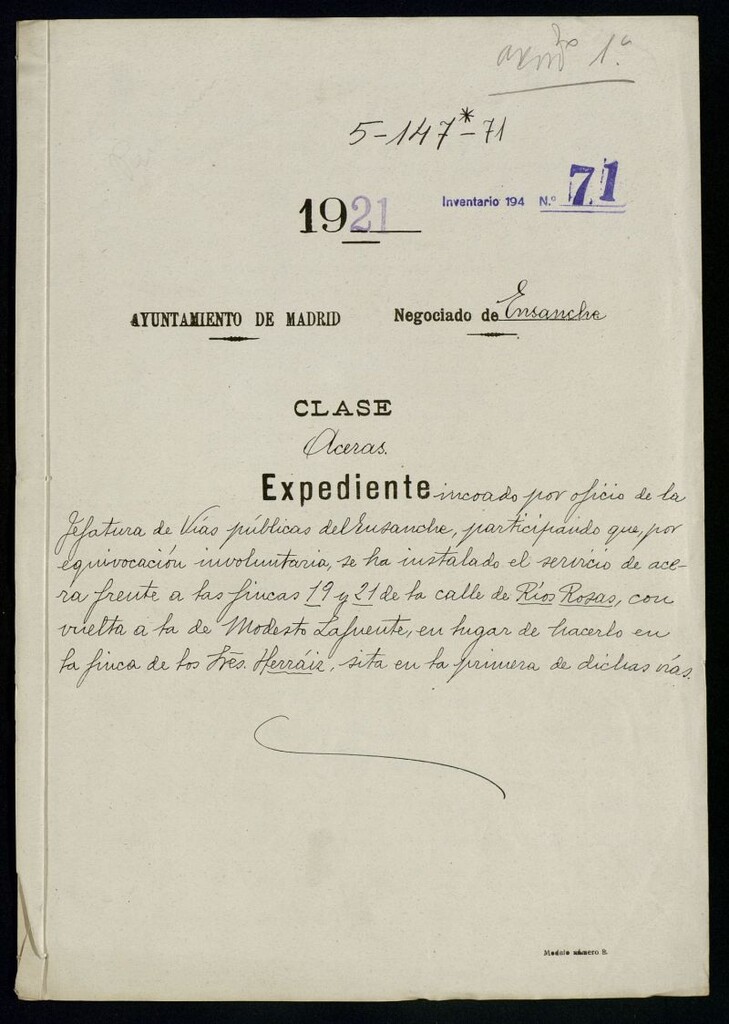 1.ª
5-147*-71
1921
Inventario 194 N.º 71
AYUNTAMIENTO DE MADRID Negociado de Ensanche
CLASE
Aceras.
Expediente incoado por oficio de la
Jefatura de Vías públicas del Ensanche, participando que, por
equivocación involuntaria, se ha instalado el servicio de ace-
ra frente a las fincas 19 y 21 de la calle de Ríos Rosas, con
vuelta a la de Modesto Lafuente, en lugar de hacerlo en
la finca de los Sres. Herráiz, sita en la primera de dichas vías.
Modelo número 8.